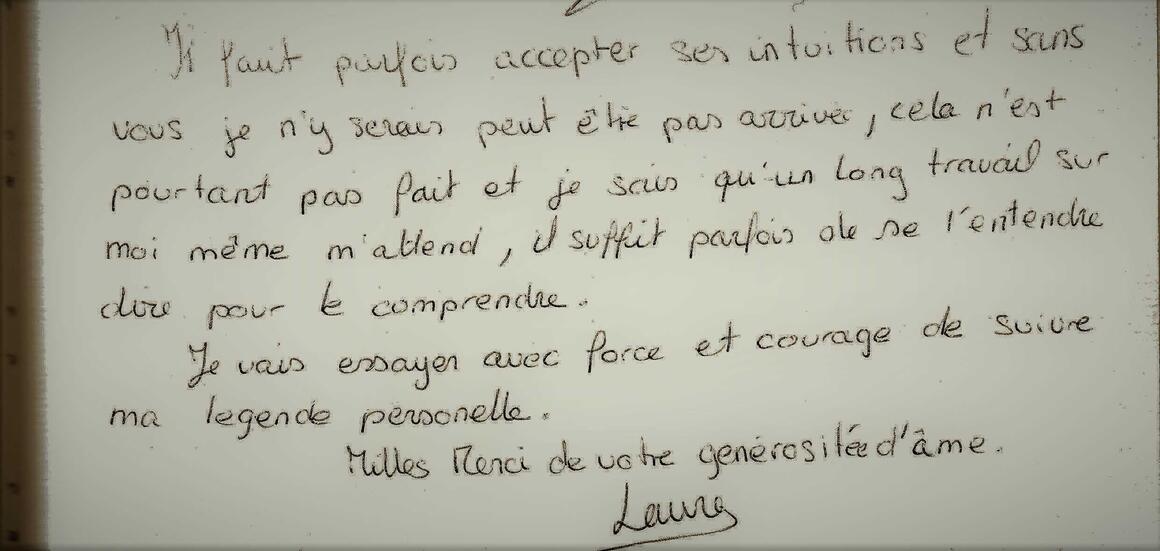 Il faut parfois accepter ses intuitions et sans
vous je n'y serais peut être pas arrivée, cela n'est
pourtant pas fait et je sais qu'un long travail sur
moi même m'attend, il suffit parfois de se l'entendre
dire pour le comprendre.
Je vais essayer avec force et courage de suivre
ma legende personelle.
Milles Merci de votre générositée d'âme.
Laura